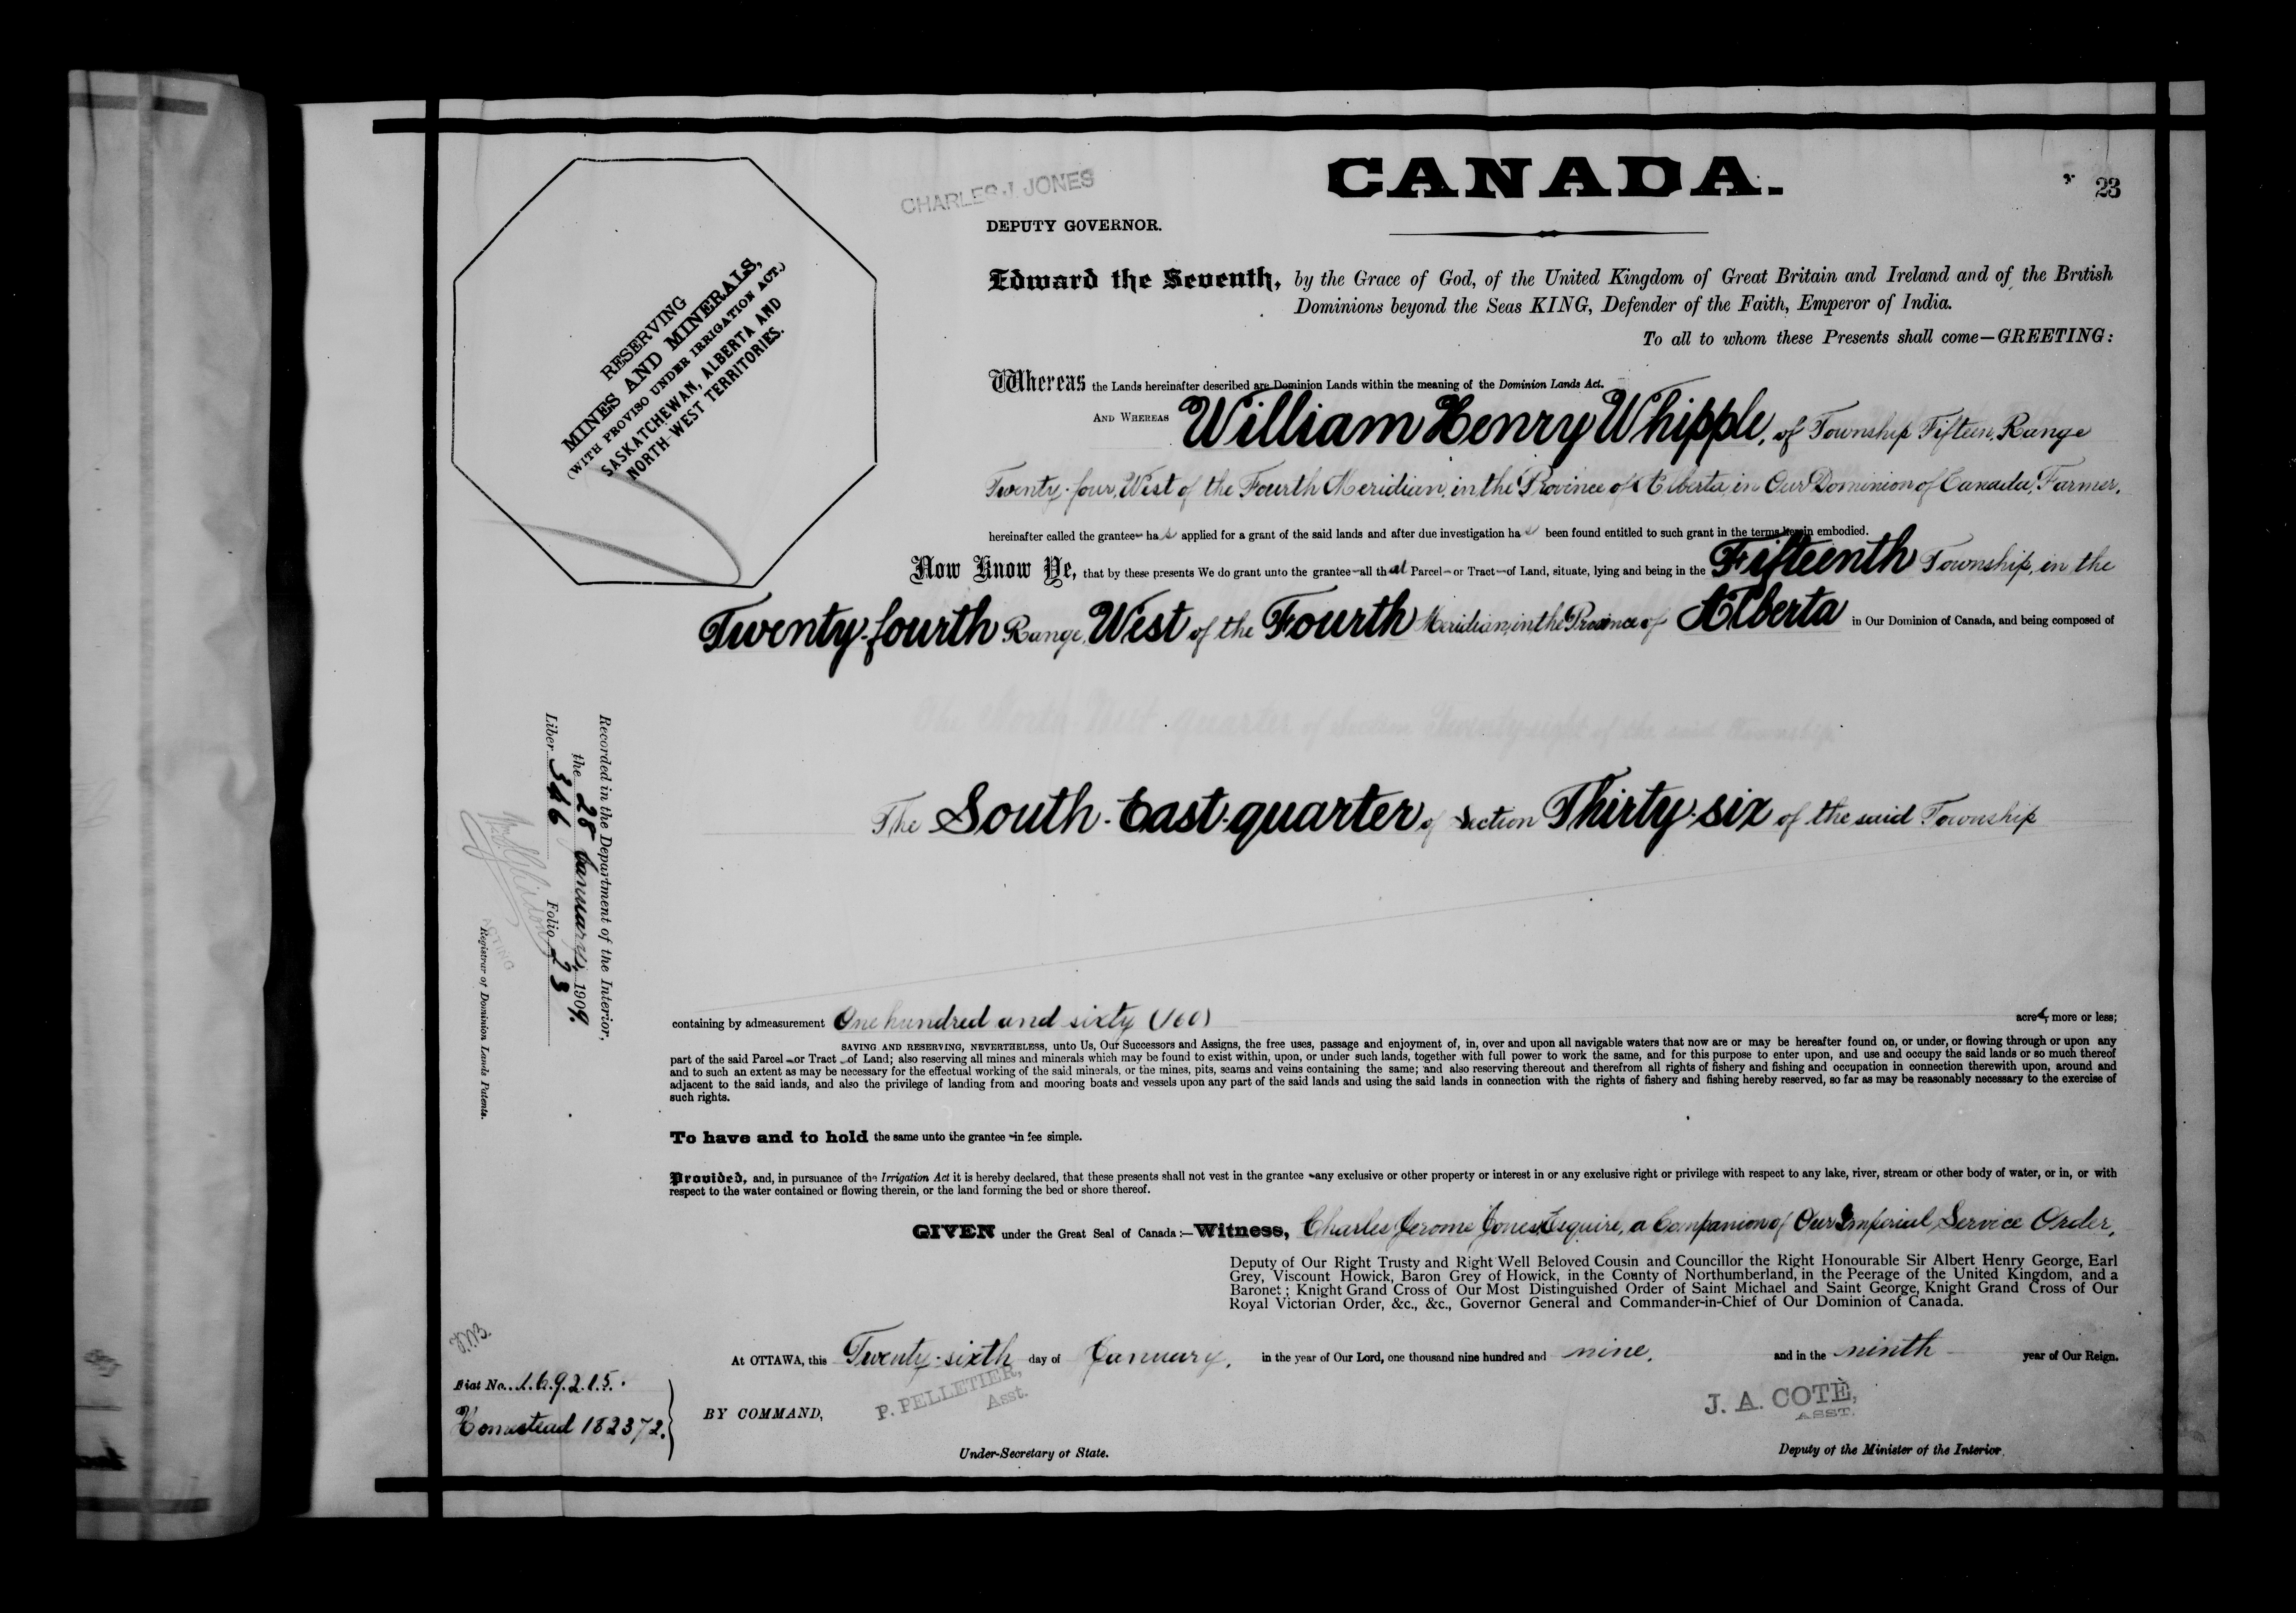 CANADA.
23
CHARLES J. JONES
DEPUTY GOVERNOR.
RESERVING
MINES AND MINERALS,
(WITH PROVISO UNDER IRRIGATION ACT.)
SASKATCHEWAN, ALBERTA AND
NORTH-WEST TERRITORIES.
Edward the Seventh, by the Grace of God, of the United Kingdom of Great Britain and Ireland and of the British
Dominions beyond the Seas KING, Defender of the Faith, Emperor of India.
To all to whom these Presents shall come—GREETING:
Whereas the Lands hereinafter described are Dominion Lands within the meaning of the Dominion Lands Act.
AND WHEREAS William Henry Whipple, of Township Fifteen, Range
Twenty-four, West of the Fourth Meridian, in the Province of Alberta, in Our Dominion of Canada, Farmer,
hereinafter called the grantee has applied for a grant of the said lands and after due investigation has been found entitled to such grant in the terms herein embodied.
Now Know Ye, that by these presents We do grant unto the grantee—all that Parcel—or Tract—of Land, situate, lying and being in the Fifteenth Township, in the
Twenty-fourth Range, West of the Fourth Meridian, in the Province of Alberta in Our Dominion of Canada, and being composed of
The South-East-quarter of Section Thirty-six of the said Township
containing by admeasurement One hundred and sixty (160) acres, more or less;
SAVING AND RESERVING, NEVERTHELESS, unto Us, Our Successors and Assigns, the free uses, passage and enjoyment of, in, over and upon all navigable waters that now are or may be hereafter found on, or under, or flowing through or upon any
part of the said Parcel—or Tract—of Land; also reserving all mines and minerals which may be found to exist within, upon, or under such lands, together with full power to work the same, and for this purpose to enter upon, and use and occupy the said lands or so much thereof
and to such an extent as may be necessary for the effectual working of the said minerals, or the mines, pits, seams and veins containing the same; and also reserving thereout and therefrom all rights of fishery and fishing and occupation in connection therewith upon, around and
adjacent to the said lands, and also the privilege of landing from and mooring boats and vessels upon any part of the said lands and using the said lands in connection with the rights of fishery and fishing hereby reserved, so far as may be reasonably necessary to the exercise of
such rights.
To have and to hold the same unto the grantee—in fee simple.
Provided, and, in pursuance of the Irrigation Act it is hereby declared, that these presents shall not vest in the grantee—any exclusive or other property or interest in or any exclusive right or privilege with respect to any lake, river, stream or other body of water, or in, or with
respect to the water contained or flowing therein, or the land forming the bed or shore thereof.
GIVEN under the Great Seal of Canada:—Witness, Charles Jerome Jones, Esquire, a Companion of Our Imperial Service Order,
Deputy of Our Right Trusty and Right Well Beloved Cousin and Councillor the Right Honourable Sir Albert Henry George, Earl
Grey, Viscount Howick, Baron Grey of Howick, in the County of Northumberland, in the Peerage of the United Kingdom, and a
Baronet; Knight Grand Cross of Our Most Distinguished Order of Saint Michael and Saint George, Knight Grand Cross of Our
Royal Victorian Order, &c., &c., Governor General and Commander-in-Chief of Our Dominion of Canada.
At OTTAWA, this Twenty-sixth day of January, in the year of Our Lord, one thousand nine hundred and nine, and in the ninth year of Our Reign.
BY COMMAND,
P. PELLETIER,
Asst.
Under-Secretary of State.
J. A. COTÈ,
ASST.
Deputy of the Minister of the Interior.
Recorded in the Department of the Interior,
the 28 January 1909.
Liber 346 Folio 23
ACTING
Registrar of Dominion Lands Patents.
Fiat No. 169215.
Homestead 182372.